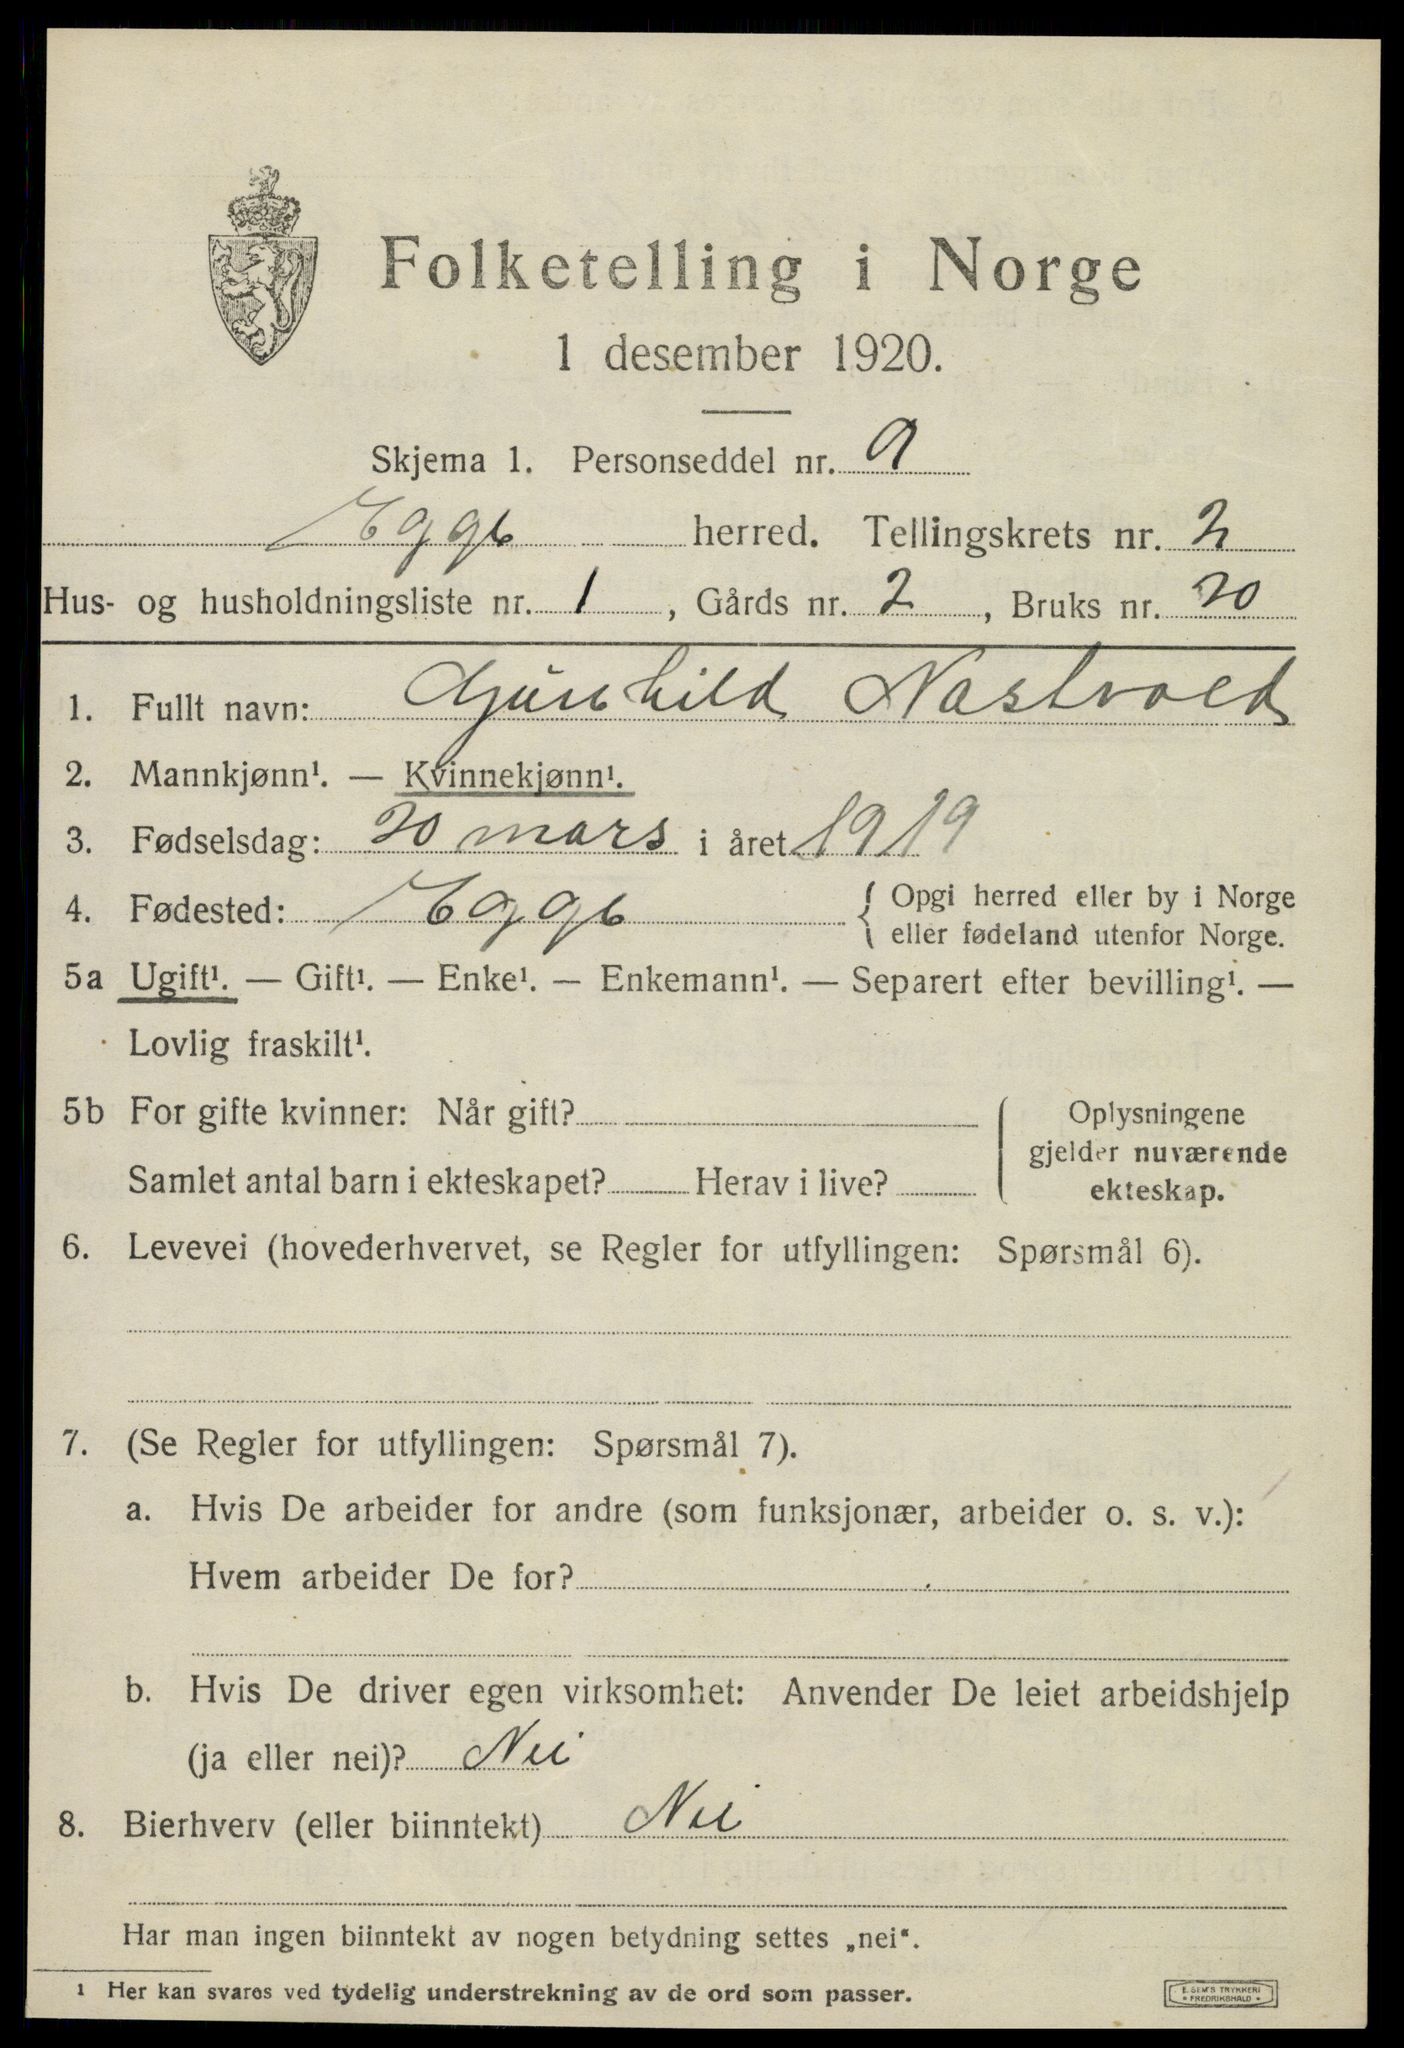 Folketelling i Norge
1 desember 1920.
Skjema 1. Personseddel nr. 9
Egge herred. Tellingskrets nr. 2
Hus- og husholdningsliste nr. 1, Gårds nr. 2, Bruks nr. 20
1. Fullt navn: Gunhild Nastvold
2. Mannkjønn¹. — Kvinnekjønn¹.
3. Fødselsdag: 20 mars i året 1919
4. Fødested: Egge { Opgi herred eller by i Norge
eller fødeland utenfor Norge.
5a Ugift¹. — Gift¹. — Enke¹. — Enkemann¹. — Separert efter bevilling¹. —
Lovlig fraskilt¹.
5b For gifte kvinner: Når gift?
Samlet antal barn i ekteskapet? Herav i live?
Oplysningene
gjelder nuværende
ekteskap.
6. Levevei (hovederhvervet, se Regler for utfyllingen: Spørsmål 6).
7. (Se Regler for utfyllingen: Spørsmål 7).
a. Hvis De arbeider for andre (som funksjonær, arbeider o. s. v.):
Hvem arbeider De for?
b. Hvis De driver egen virksomhet: Anvender De leiet arbeidshjelp
(ja eller nei)? Nei
8. Bierhverv (eller biinntekt) Nei
Har man ingen biinntekt av nogen betydning settes „nei“.
1 Her kan svares ved tydelig understrekning av de ord som passer.
E. SEM'S TRYKKERI
FREDRIKSHALD